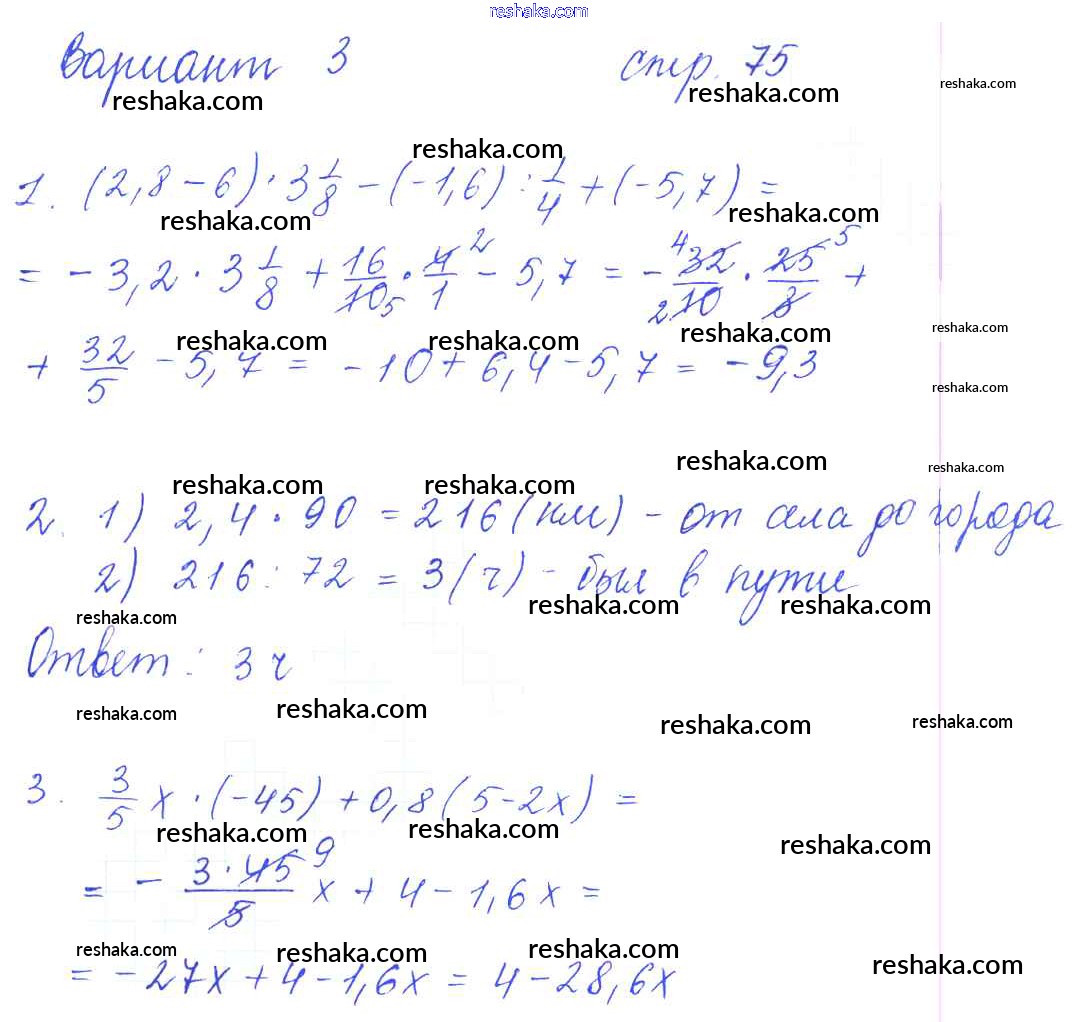 reshaka.com
Вариант 3 стр. 75
reshaka.com reshaka.com reshaka.com
reshaka.com
1. (2,8 - 6) · 3 1/8 - (-1,6) : 1/4 + (-5,7) =
reshaka.com reshaka.com
= - 3,2 · 3 1/8 + 16/10 5 · 4/1 2 - 5,7 = - 4 32/2 10 · 25 5/8 +
reshaka.com reshaka.com reshaka.com reshaka.com
+ 32/5 - 5,7 = - 10 + 6,4 - 5,7 = - 9,3
reshaka.com
reshaka.com reshaka.com
reshaka.com reshaka.com
2. 1) 2,4 · 90 = 216 (км) - от села до города
2) 216 : 72 = 3 (ч) - был в пути
reshaka.com reshaka.com reshaka.com
Ответ : 3 ч
reshaka.com reshaka.com reshaka.com reshaka.com
3. 3/5 x · (-45) + 0,8 (5 - 2x) =
reshaka.com reshaka.com reshaka.com
= - 3 · 45 9/5 x + 4 - 1,6x =
reshaka.com reshaka.com reshaka.com reshaka.com
= - 27x + 4 - 1,6x = 4 - 28,6x